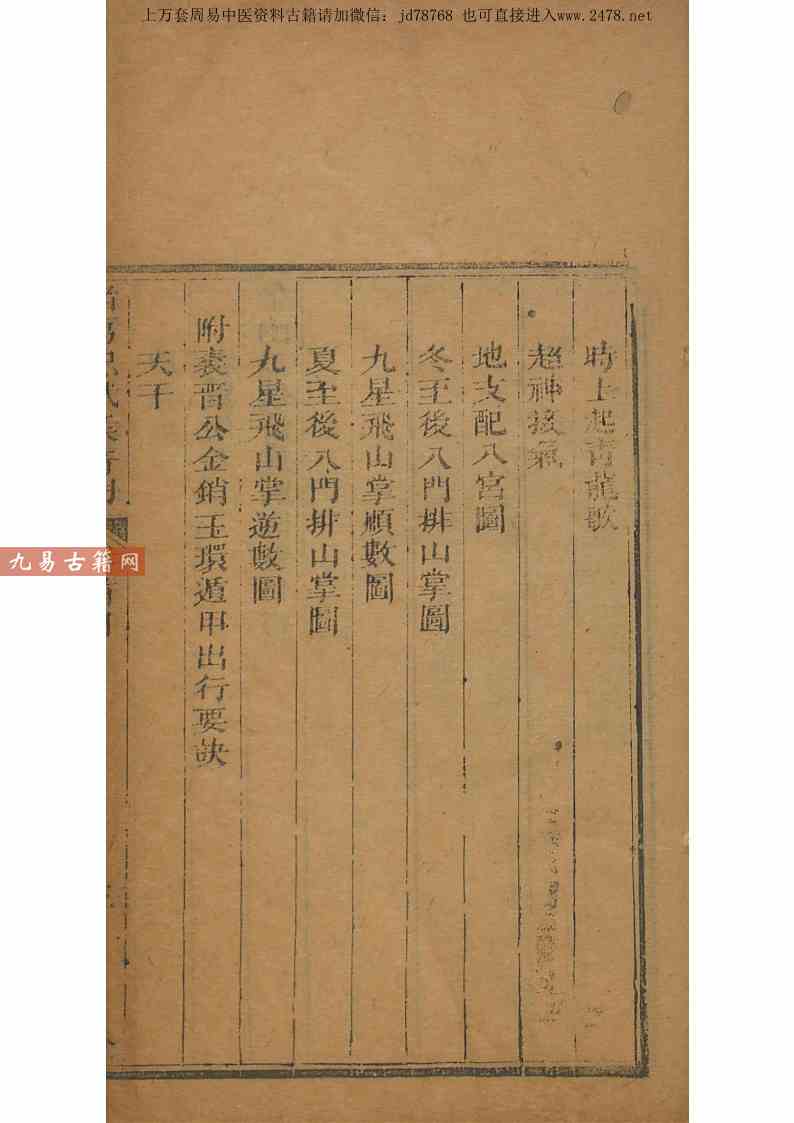 上万套周易中医资料古籍请加微信：jd78768 也可直接进入www.2478.net
時上起青龍歌
超神接氣
地支配八宮圖
冬至後八門排山掌圖
九星飛山掌順數圖
夏至後八門排山掌圖
九星飛山掌逆數圖
附裴晋公金銷玉環遁甲出行要訣
天干
九易古籍网